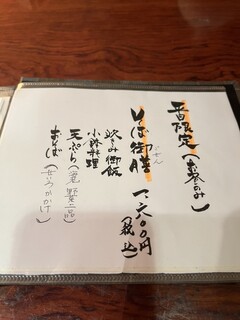 平日限定(お昼のみ)
いろは御膳 一、六〇〇円(税込)
ごぜん
炊き込み御飯
小鉢料理
天ぷら(海老、野菜三品)
おそば(せいろかかけ)